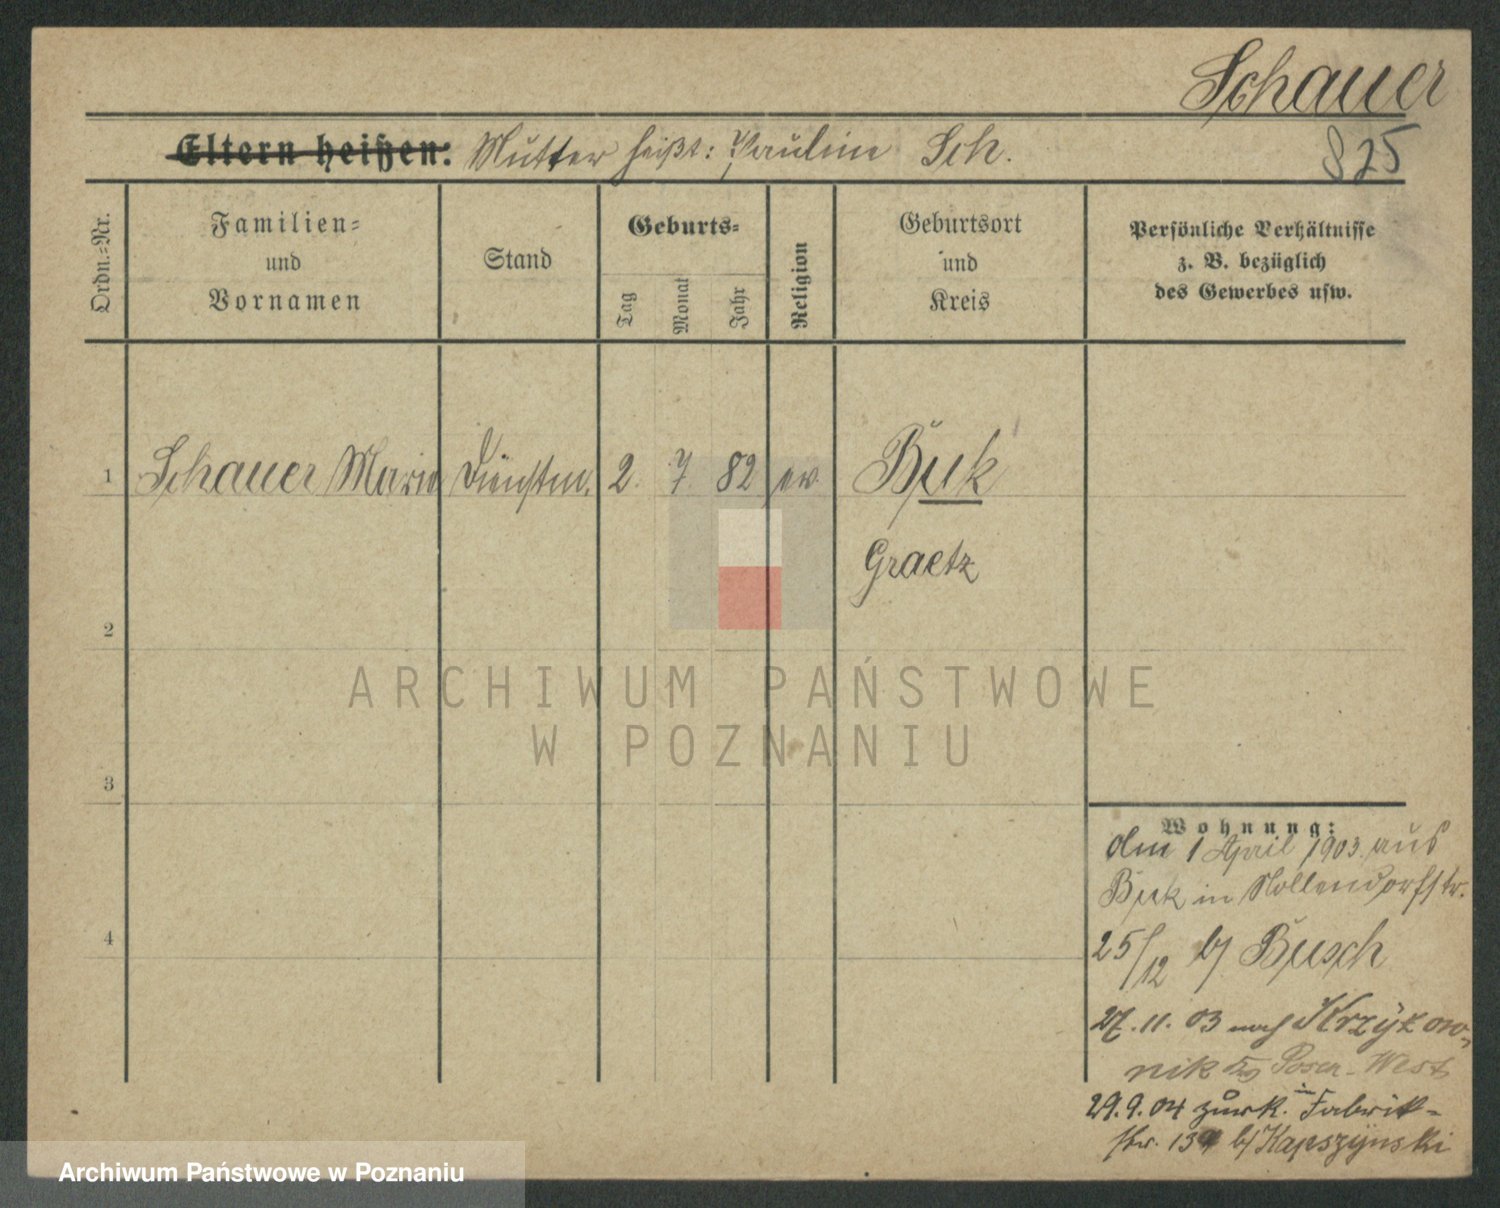 Schauer
825
Eltern heißen: Mutter heißt: Paulin Sch.
Ordn.=Nr.
Familien=
und
Vornamen
Stand
Geburts=
Tag
Monat
Jahr
Religion
Geburtsort
und
Kreis
Persönliche Verhältnisse
z. B. bezüglich
des Gewerbes usw.
1 Schauer Marie Dienstm. 2. 7. 82 ev. Buk
Graetz
2
3
4
Wohnung:
den 1 April 1903. aus
Buk in Nollendorfstr.
25/12 b/ Busch
27. 11. 03 nach Krzyżow-
nik Posen-West
29.9.04 zurk. in Fabrik-
str. b/ Kapszynski
ARCHIWUM PAŃSTWOWE
W POZNANIU
Archiwum Państwowe w Poznaniu